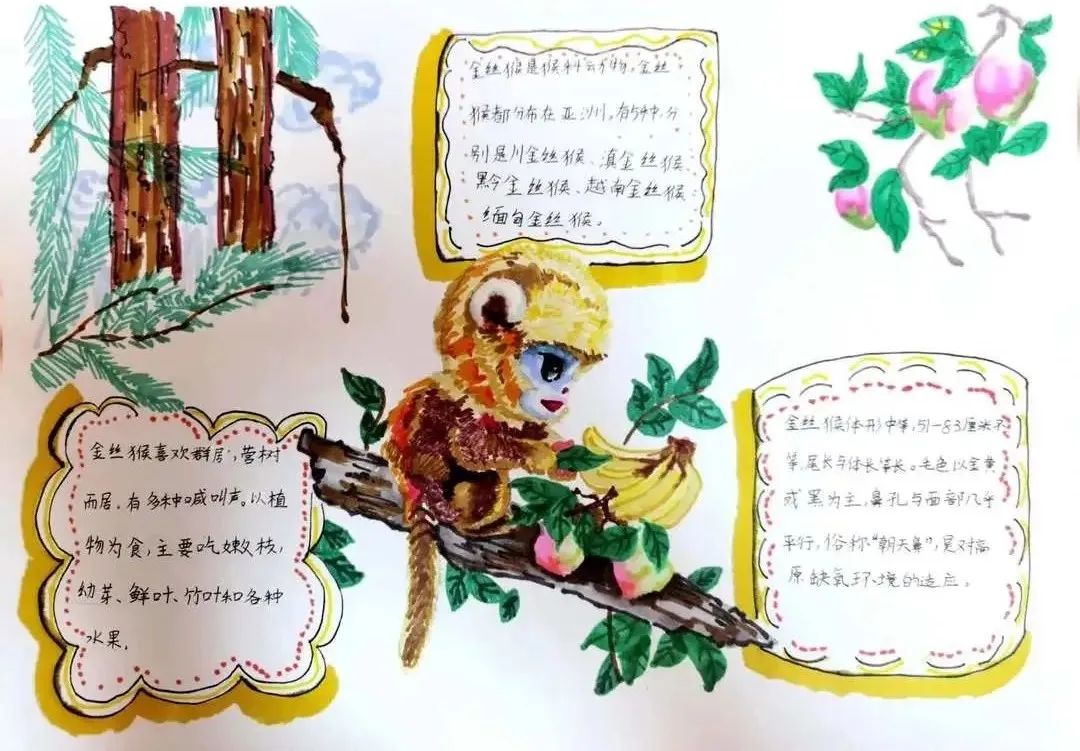 金丝猴是猴科动物,金丝
猴都分布在亚洲。有5种,分
别是川金丝猴、滇金丝猴
黔金丝猴、越南金丝猴
缅甸金丝猴。
金丝猴喜欢群居,营树
而居,有多种喊叫声。以植
物为食,主要吃嫩枝,
幼芽、鲜叶、竹叶和各种
水果.
金丝猴体形中等,51-83厘米不
等,尾长与体长等长。毛色以金黄
或黑为主,鼻孔与面部几乎
平行,俗称"朝天鼻",是对高
原缺氧环境的适应。